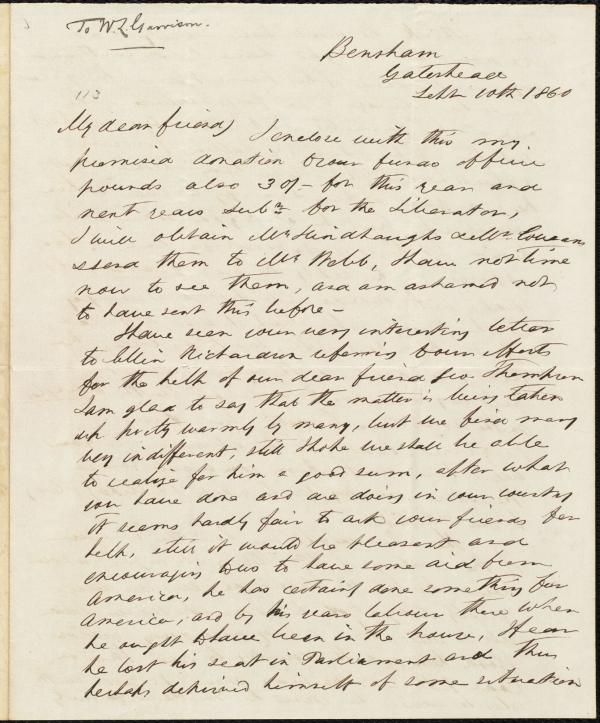 To W. L. Garrison.
Bensham
Gateshead
Sept 10th 1860
113
My dear friend, I enclose with this my
promised donation to our funds of five
pounds also 30/- for this year and
next years subn for the Liberator,
I will obtain Mr Hindhaughs & Mr
& send them to Mr Webb, I have not time
now to see them, and am ashamed not
to have sent this before -
I have seen your very interesting letter
to Ellen Richardson referring to our efforts
for the help of our dear friend Geo Thompson
I am glad to say that the matter is being taken
up pretty warmly by many, but we find many
very indifferent, still I hope we shall be able
to realize for him a good sum, after what
you have done and are doing in your country
it seems hardly fair to ask your friends for
help, still it would be pleasant and
encouraging to us to have some aid from
America, he has certainly done something for
America, and by his years labour there when
he ought to have been in the house, I fear
he lost his seat in Parliament and thus
perhaps deprived himself of some situation